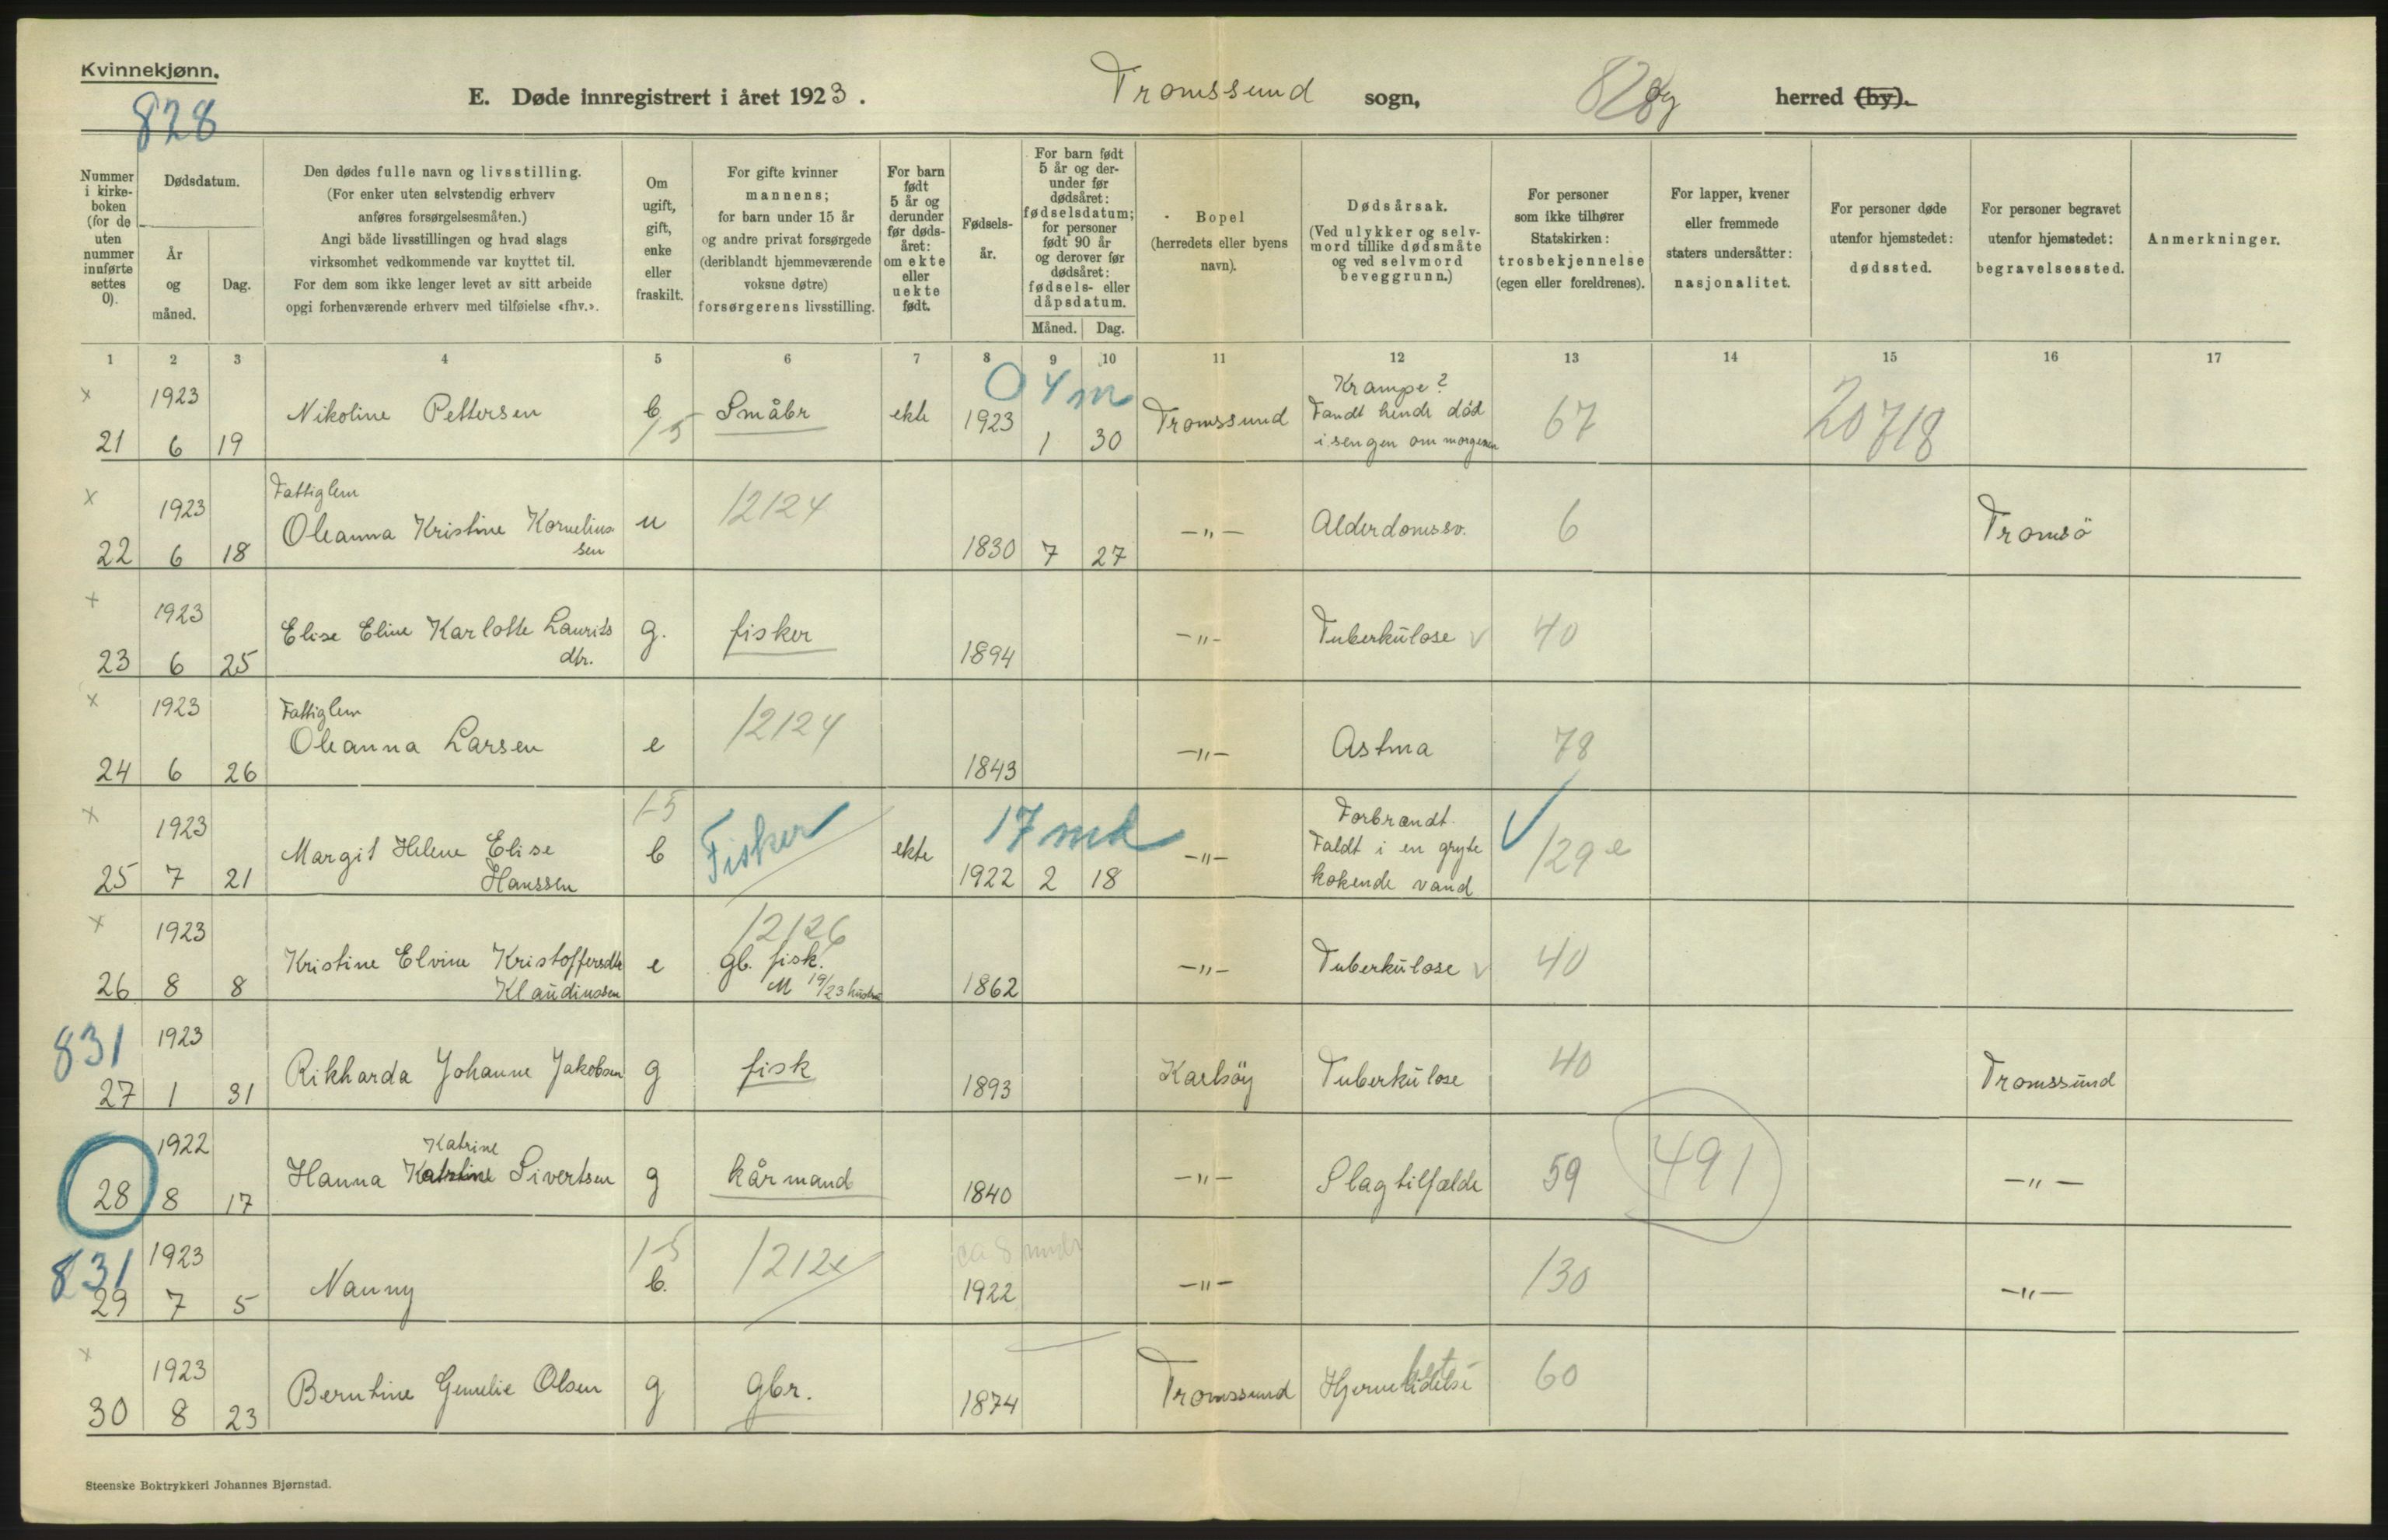 Kvinnekjønn.
828
E. Døde innregistrert i året 1923. Tromssund sogn, 828 herred (by).
Nummer i kirke- boken (for de uten nummer innførte settes 0).
Dødsdatum.
År og måned.
Dag.
Den dødes fulle navn og livsstilling.
(For enker uten selvstendig erhverv
anføres forsørgelsesmåten.)
Angi både livsstillingen og hvad slags
virksomhet vedkommende var knyttet til.
For dem som ikke lenger levet av sitt arbeide
opgi forhenværende erhverv med tilføielse «fhv.».
Om ugift, gift, enke eller fraskilt.
For gifte kvinner
mannens;
for barn under 15 år
og andre privat forsørgede
(deriblandt hjemmeværende
voksne døtre)
forsørgerens livsstilling.
For barn født 5 år og derunder før døds- året: om ekte eller uekte født.
Fødsels- år.
For barn født 5 år og der- under før dødsåret: fødselsdatum; for personer født 90 år og derover før dødsåret: fødsels- eller dåpsdatum.
Måned. Dag.
Bopel
(herredets eller byens
navn).
Dødsårsak.
(Ved ulykker og selv-
mord tillike dødsmåte
og ved selvmord
beveggrunn.)
For personer
som ikke tilhører
Statskirken:
trosbekjennelse
(egen eller foreldrenes).
For lapper, kvener
eller fremmede
staters undersåtter:
nasjonalitet.
For personer døde
utenfor hjemstedet:
dødssted.
For personer begravet
utenfor hjemstedet:
begravelsessted.
Anmerkninger.
1 2 3 4 5 6 7 8 9 10 11 12 13 14 15 16 17
x 21 1923 6 19 Nikoline Pettersen b 1-5 Småbr ekte 0 4 m 1923 1 30 Tromssund Krampe? Fandt hende død i sengen om morgenen 67 20718
x 22 1923 6 18 Fattiglem Oleanna Kristine Kornelius sen u 12124 1830 7 27 -"- Alderdomssv. 6 Tromsö
x 23 1923 6 25 Elise Eline Karlotte Laurits dtr. g. fisker 1894 -"- Tuberkulose v 40
x 24 1923 6 26 Fattiglem Oleanna Larsen e 12124 1843 -"- Astma 78
x 25 1923 7 21 Margit Helene Elise Hanssen 1-5 b Fisker ekte 17 md 1922 2 18 -"- Forbrændt. Faldt i en gryte kokende vand 129 e
x 26 1923 8 8 Kristine Elvine Kristoffersdtr Klaudiussen e 12126 gb. fisk. M 19/23 1862 -"- Tuberkulose v 40
831 27 1923 1 31 Rikharda Johanne Jakobsen g fisk 1893 Karlsöy Tuberkulose 40 Tromssund
28 1922 8 17 Hanna Katrine Sivertsen g kårmand 1840 -"- Slagtilfælde 59 491 -"-
831 29 1923 7 5 Nanny 1-5 b. 1212x ca 8 mndr 1922 -"- 130 -"-
x 30 1923 8 23 Berntine Gemelie Olsen g gbr. 1874 Tromssund Hjernelidelse 60
Steenske Boktrykkeri Johannes Bjørnstad.